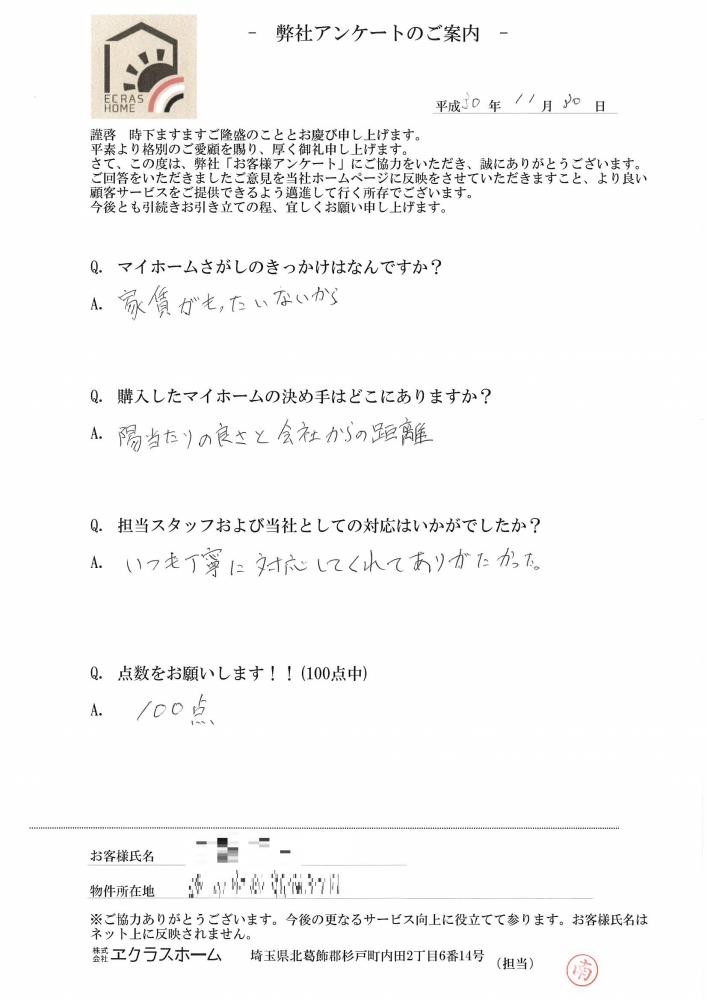 ECRAS
HOME
- 弊社アンケートのご案内 -
平成30年 11月 30日
謹啓 時下ますますご隆盛のこととお慶び申し上げます。
平素より格別のご愛顧を賜り、厚く御礼申し上げます。
さて、この度は、弊社「お客様アンケート」にご協力をいただき、誠にありがとうございます。
ご回答をいただきましたご意見を当社ホームページに反映をさせていただきますこと、より良い
顧客サービスをご提供できるよう邁進して行く所存でございます。
今後とも引続きお引き立ての程、宜しくお願い申し上げます。
Q. マイホームさがしのきっかけはなんですか？
A. 家賃がもったいないから
Q. 購入したマイホームの決め手はどこにありますか？
A. 陽当たりの良さと会社からの距離
Q. 担当スタッフおよび当社としての対応はいかがでしたか？
A. いつも丁寧に対応してくれてありがたかった。
Q. 点数をお願いします！！(100点中)
A. 100点
お客様氏名
物件所在地
※ご協力ありがとうございます。今後の更なるサービス向上に役立てて参ります。お客様氏名は
ネット上に反映されません。
株式会社 ヱクラスホーム 埼玉県北葛飾郡杉戸町内田2丁目6番14号 （担当）